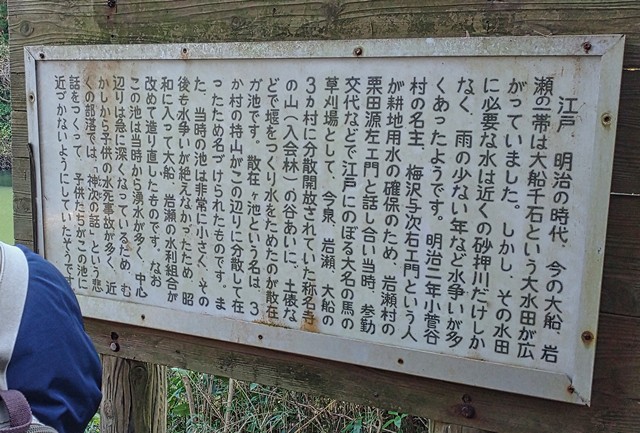 江戸 明治の時代、今の大船、岩
瀬の一帯は大船千石という大水田が広
がっていました。しかし、その水田
に必要な水は近くの砂押川だけしか
なく、雨の少ない年など水争いが多
くあったようです。明治二年小菅谷
村の名主、梅沢与次右エ門という人
が耕地用水の確保のため、岩瀬村の
栗田源左エ門と話し合い当時、参勤
交代などで江戸にのぼる大名の馬の
草刈場として、今泉、岩瀬、大船の
3ヵ村に分散開放されていた称名寺
の山(入会林)の谷あいに、土俵な
どで堰をつくり水をためたのが散在
が池です。散在ヶ池という名は、3
か村の持山がこの辺りに分散して在
ったため名づけられたものです。ま
た、当時の池は非常に小さく、その
後も水争いが絶えなかったため、昭
和に入って大船、岩瀬の水利組合が
改めて造り直したものです。なお
この池は当時から湧水が多く、中心
辺りは急に深くなっているため、む
かしから子供の水死事故が多く、近
くの部落では、「神次の話」という悲
話をつくって、子供たちがこの池に
近づかないようにしていたそうです